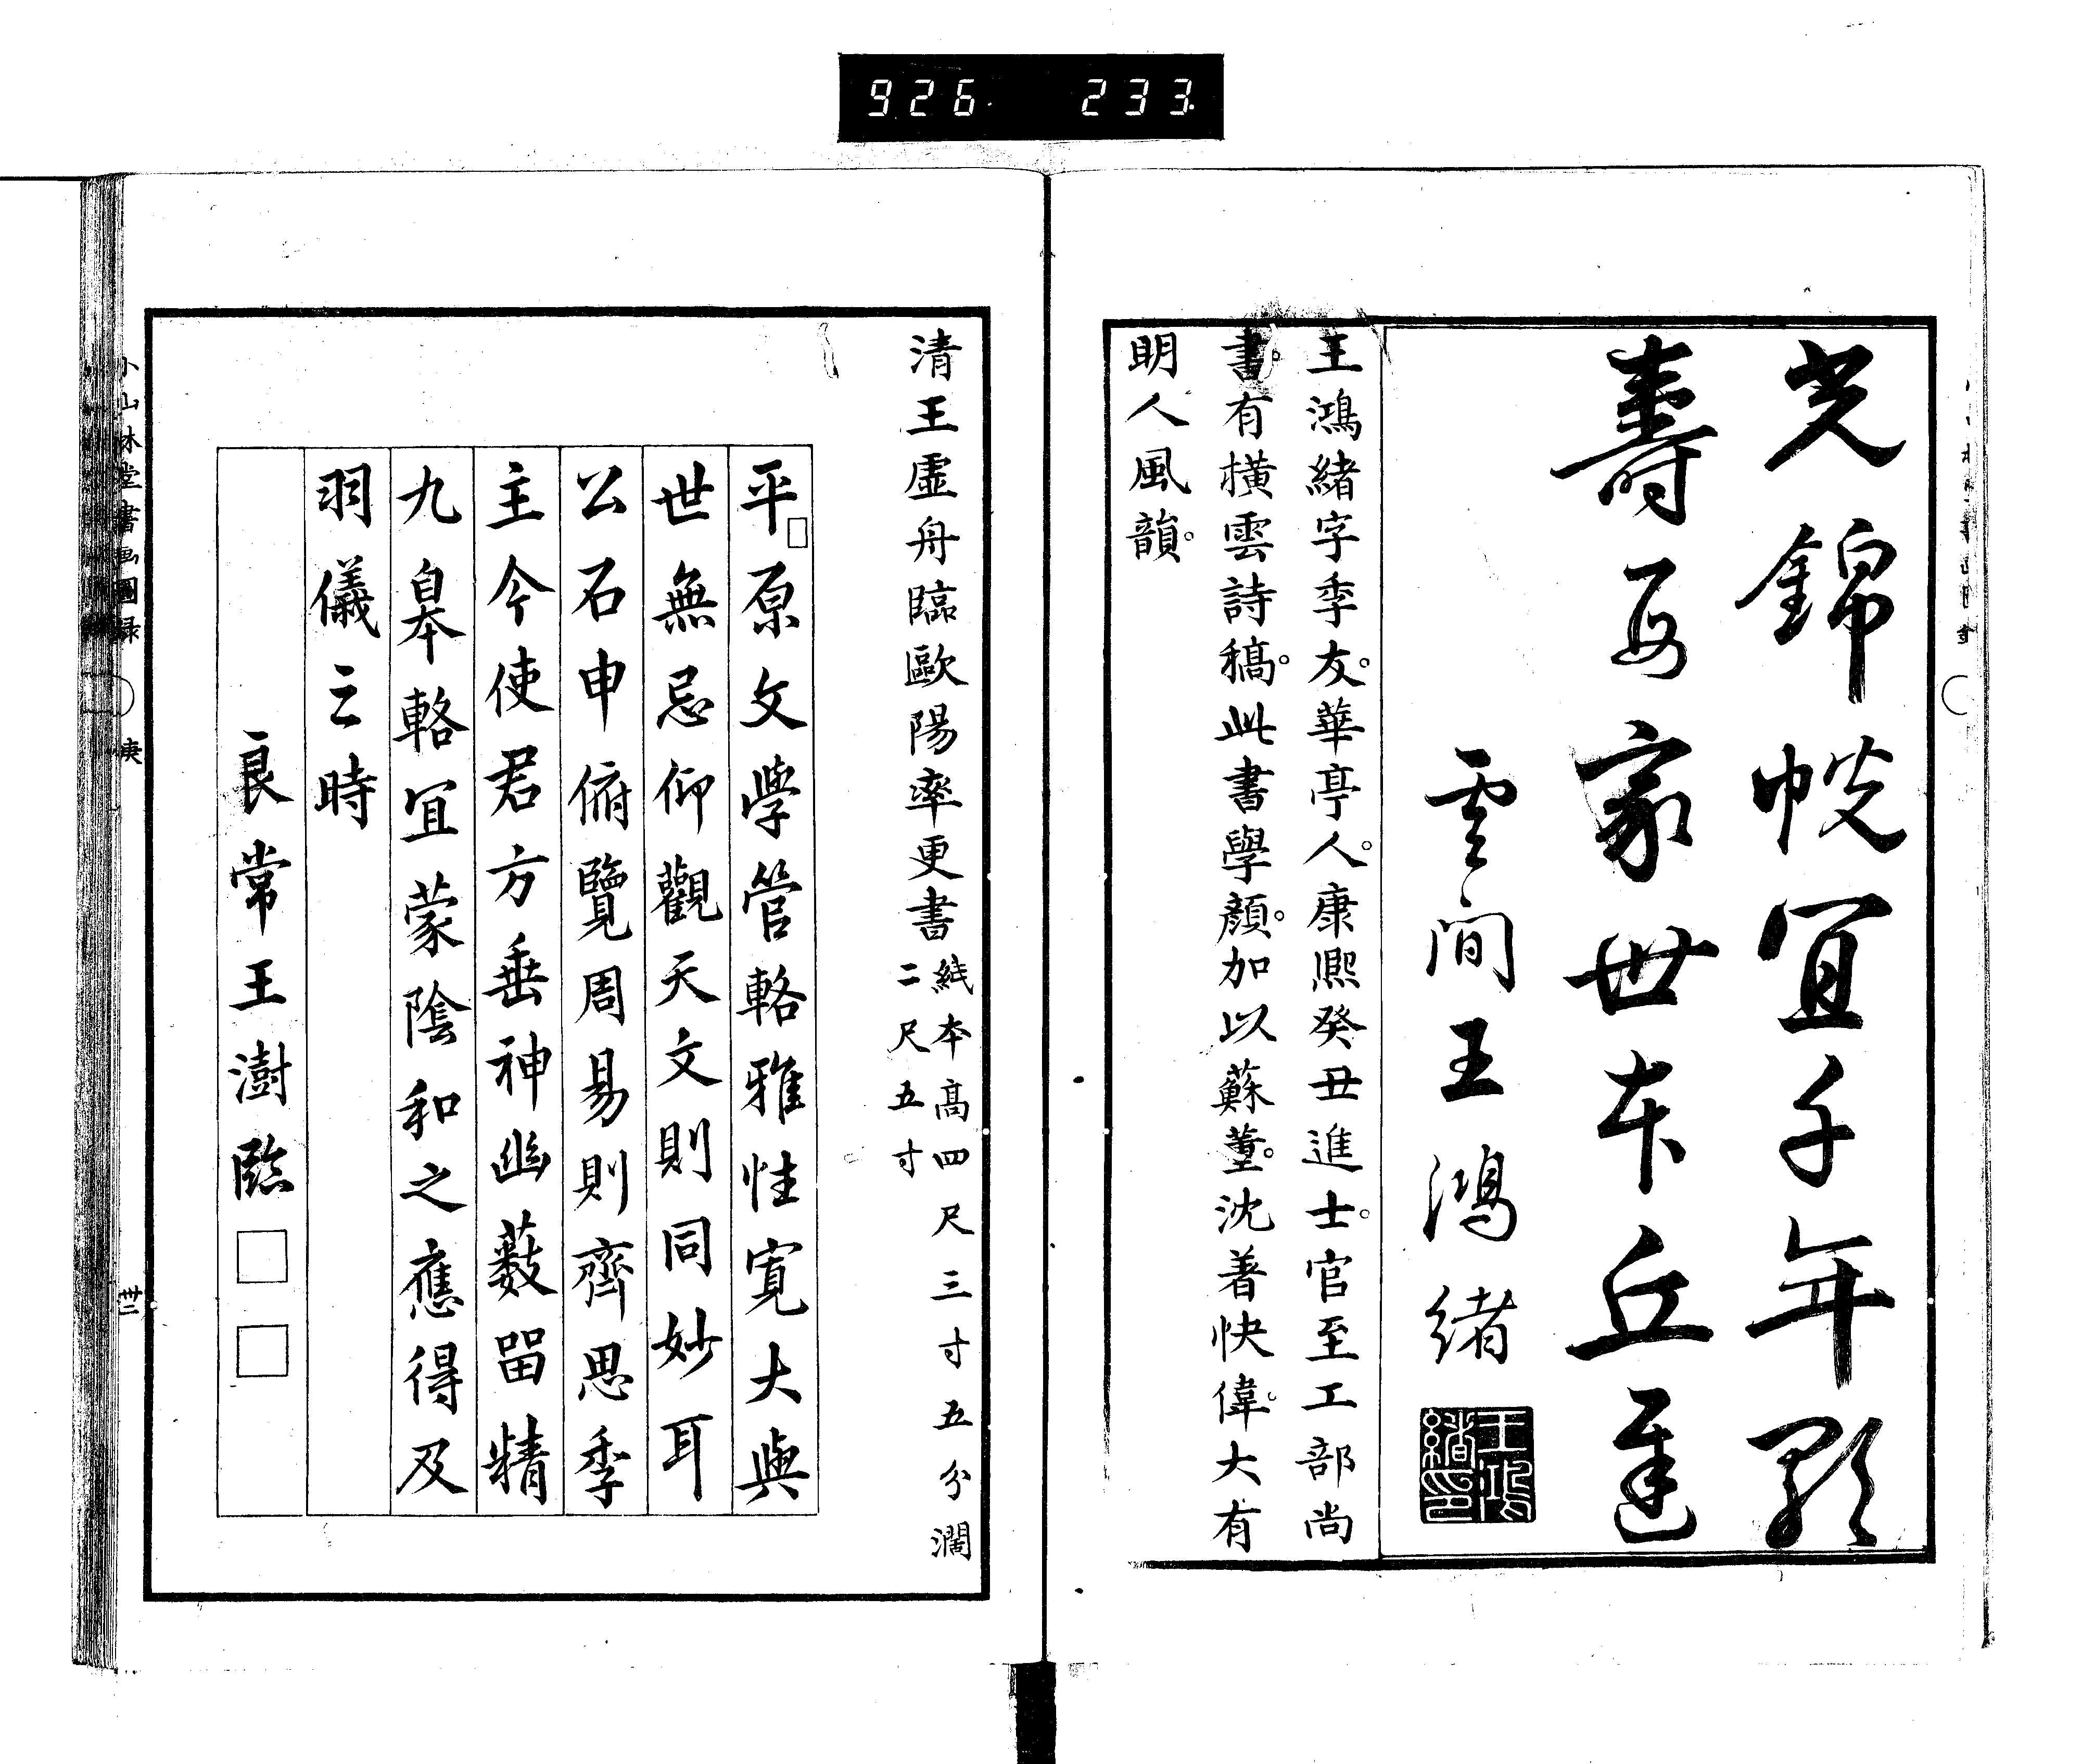 926 233
光錦帨宜千年 
壽母家世本丘
雲間王鴻緒
王鴻緒印
王鴻緒字季友。華亭人。康熙癸丑進士。官至工部尚
書。有橫雲詩稿。此書學顏。加以蘇董。沈著快偉。大有
明人風韻。
清王虛舟臨歐陽率更書
紙本高四尺三寸五分濶
二尺五寸
平原文學管輅雅性寬大與
世無忌仰觀天文則同妙耳
公石申俯覽周易則齊思季
主今使君方垂神幽藪留精
九皐輅宜蒙陰和之應得及
羽儀之時
良常王澍臨
小山林堂書画圖錄
庚
卅二